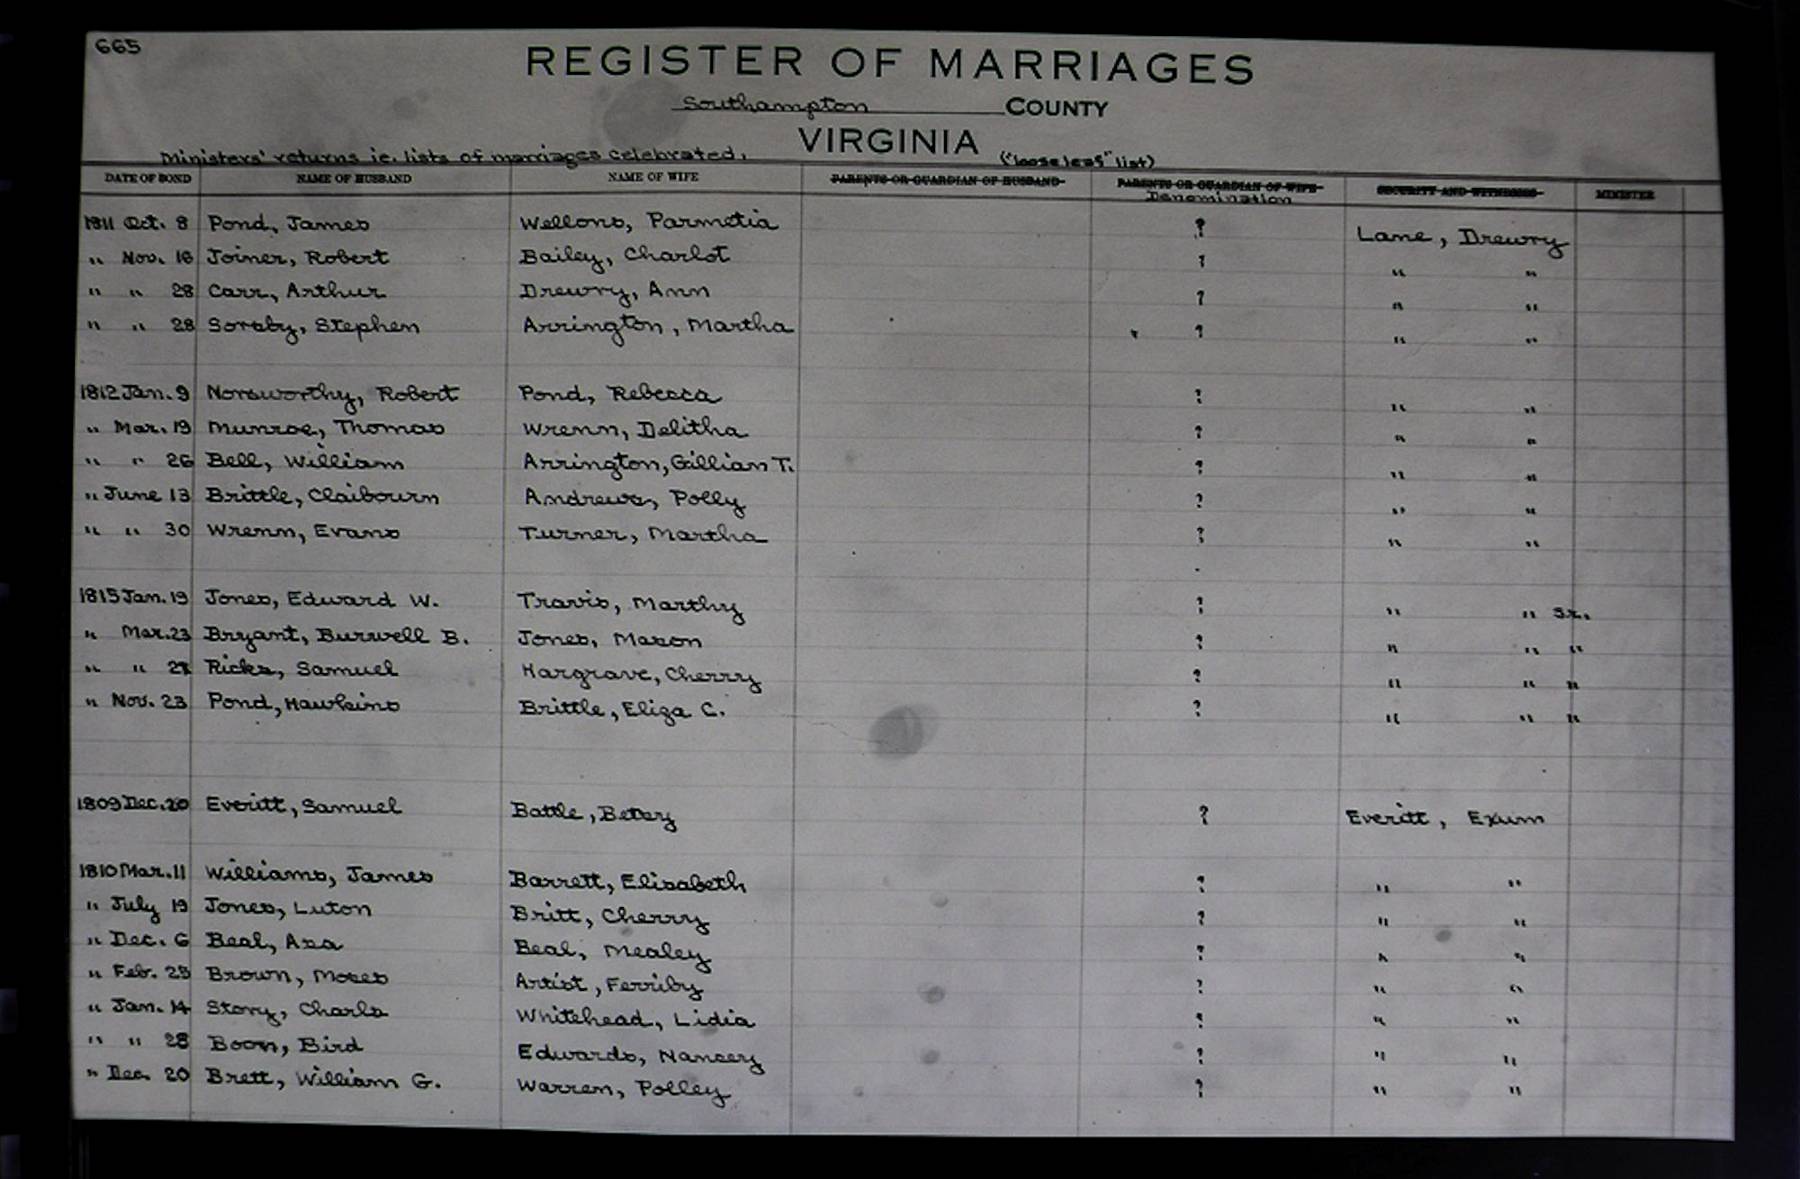 665
REGISTER OF MARRIAGES
Southampton COUNTY
VIRGINIA
Ministers' returns ie. lists of marriages celebrated. ("loose leaf" list)
DATE OF BOND NAME OF HUSBAND NAME OF WIFE PARENTS OR GUARDIAN OF HUSBAND PARENTS OR GUARDIAN OF WIFE SECURITY AND WITNESSES MINISTER
Denomination
1811 Oct. 8 Pond, James Wellons, Parmetia ? Lane, Drewry
" Nov. 16 Joiner, Robert Bailey, Charlot ? " "
" " 28 Carr, Arthur Drewry, Ann ? " "
" " 28 Soreby, Stephen Arrington, Martha ? " "
1812 Jan. 9 Norsworthy, Robert Pond, Rebecca ? " "
" Mar. 19 Munroe, Thomas Wrenn, Delitha ? " "
" " 26 Bell, William Arrington, Gillian T. ? " "
" June 13 Brittle, Claibourn Andrews, Polly ? " "
" " 30 Wrenn, Evans Turner, Martha ? " "
1815 Jan. 19 Jones, Edward W. Travis, Marthy ? " " Sr.
" Mar. 23 Bryant, Burwell B. Jones, Mason ? " " "
" " Ricks, Samuel Hargrave, Cherry ? " " "
" Nov. 23 Pond, Hawkins Brittle, Eliza C. ? " " "
1809 Dec. 20 Everitt, Samuel Battle, Betsy ? Everitt, Exum
1810 Mar. 11 Williams, James Barrett, Elisabeth ? " "
" July 19 Jones, Luton Britt, Cherry ? " "
" Dec. 6 Beal, Asa Beal, Mealey ? " "
" Feb. 25 Brown, Moses Artist, Ferriby ? " "
" Jan. 14 Story, Charls Whitehead, Lidia ? " "
" " 28 Boon, Bird Edwards, Nancey ? " "
" Dec. 20 Brett, William G. Warren, Polley ? " "